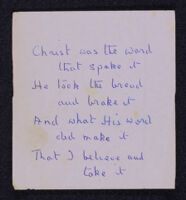 Christ was the word
that spake it
He took the bread
and brake it
And what His word
did make it
That I believe and
take it